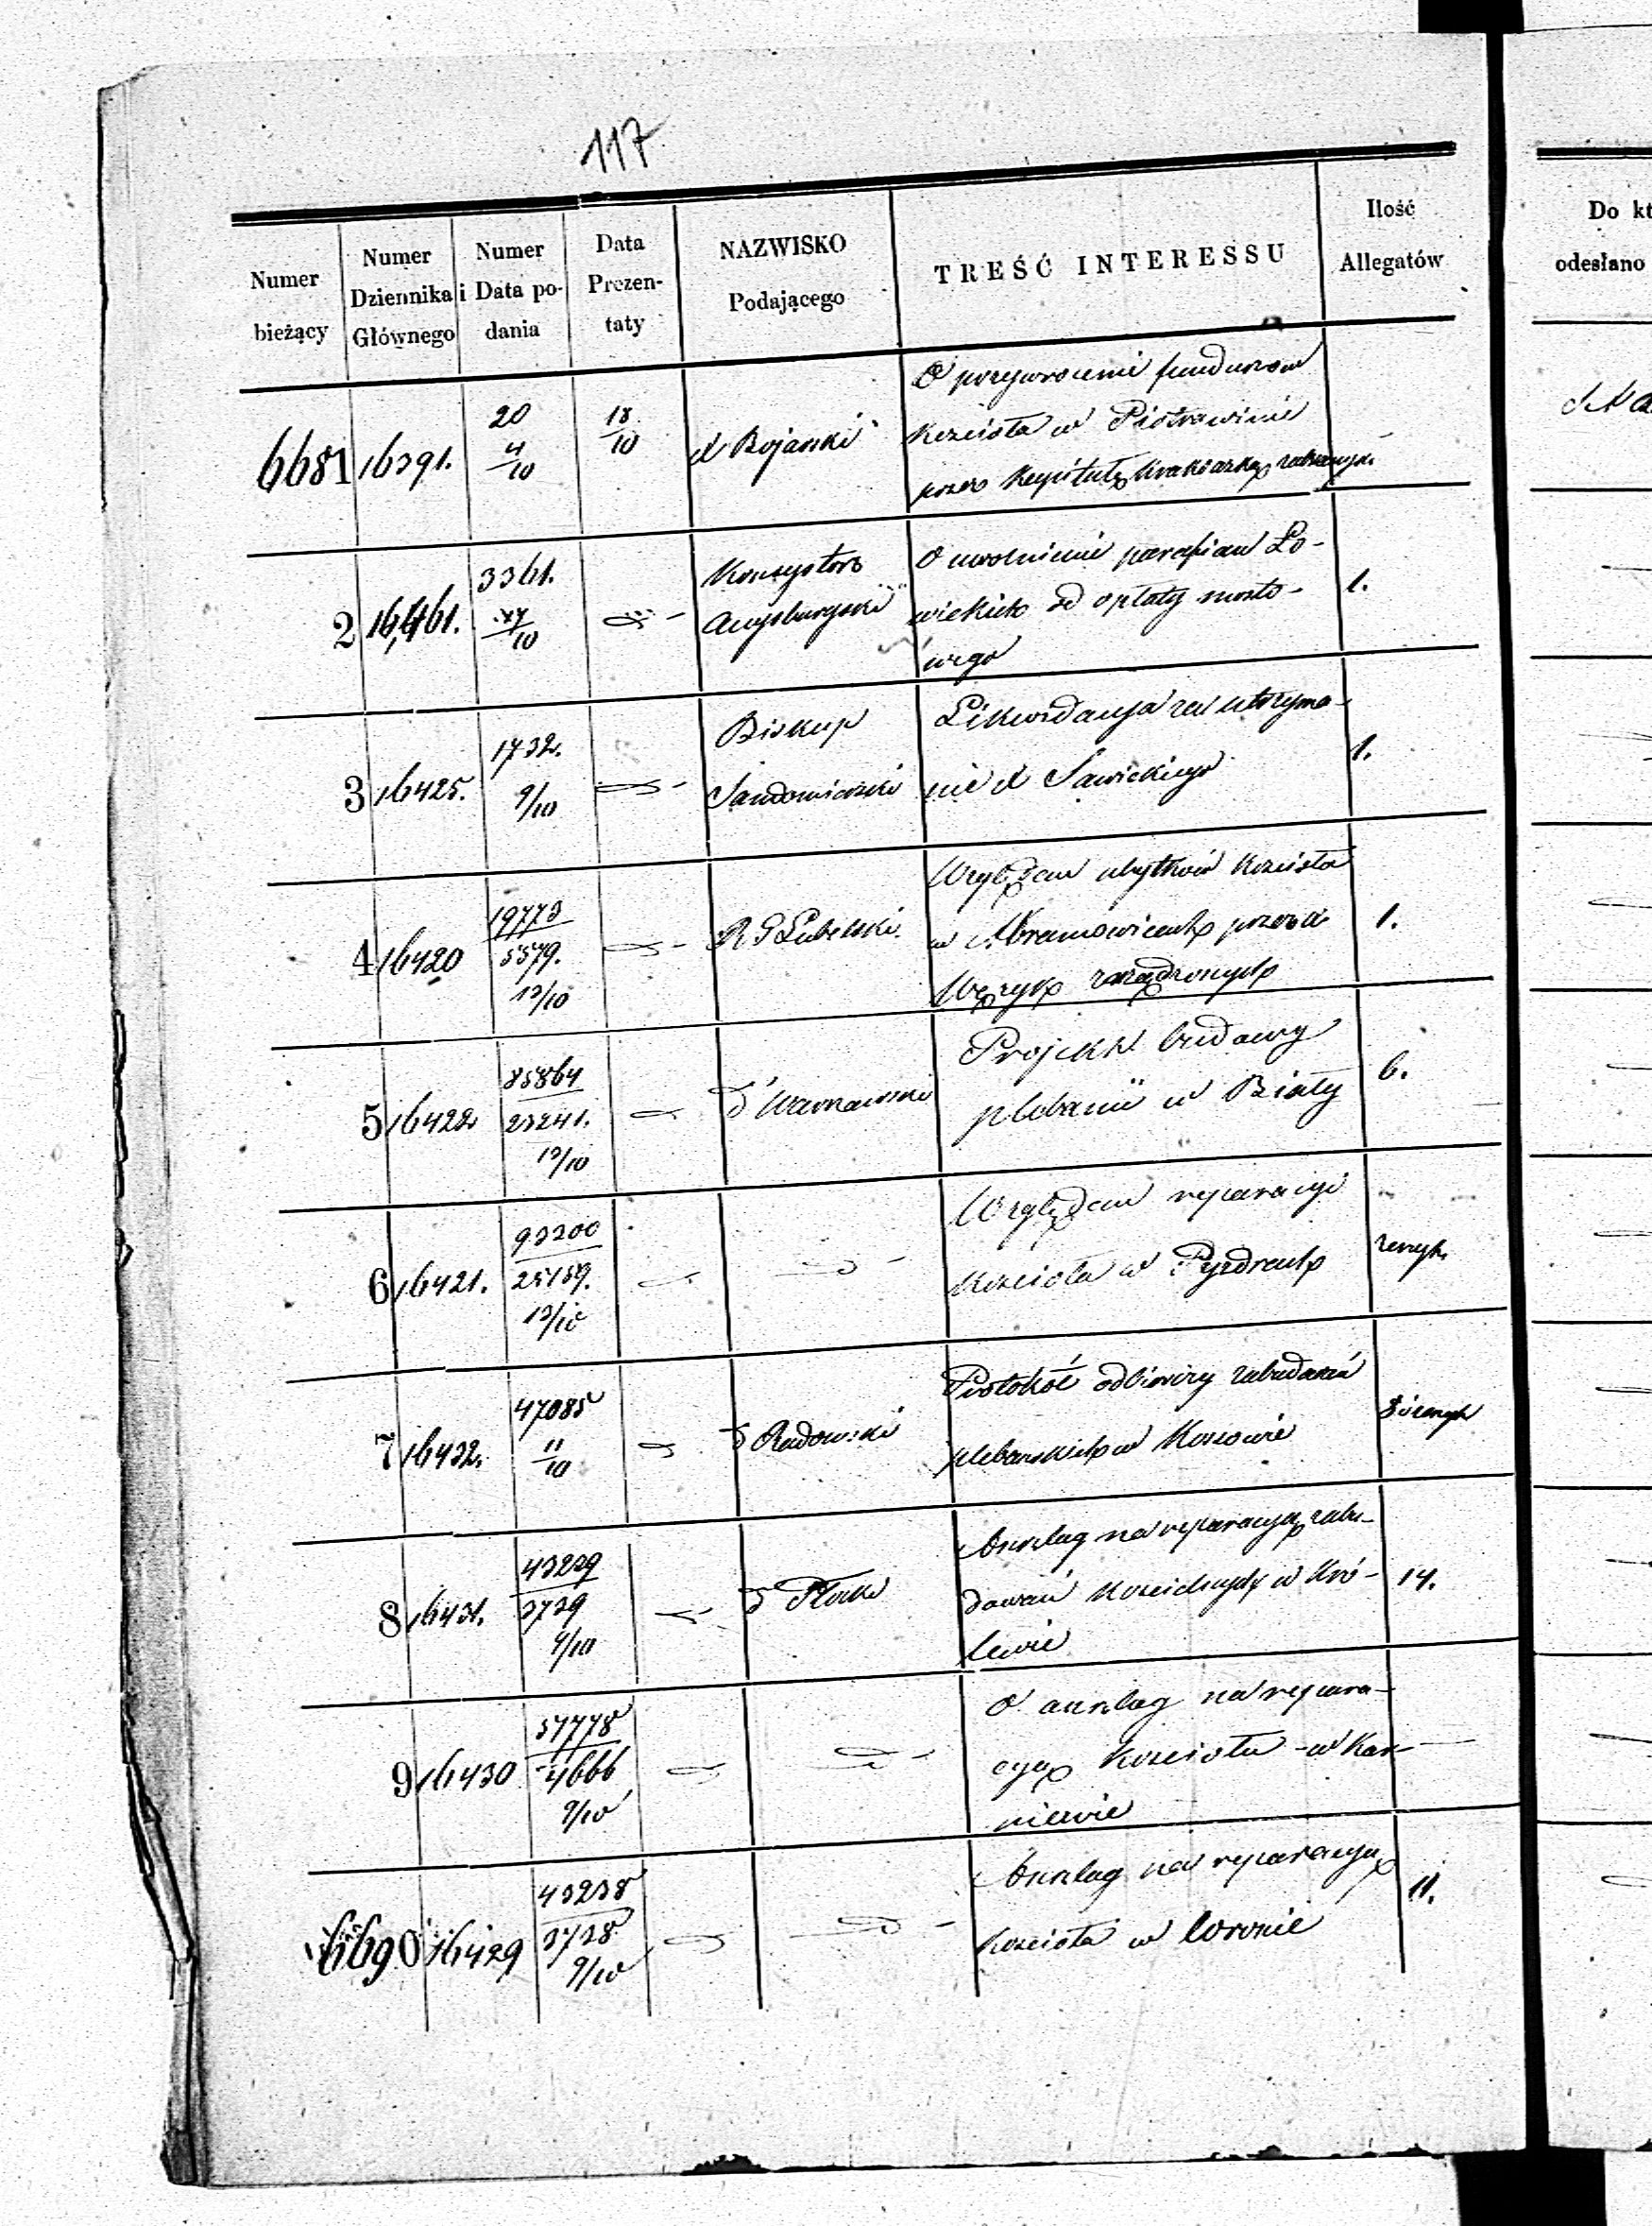 117
Numer bieżący
Numer Dziennika Głównego
Numer i Data podania
Data Prezentaty
NAZWISKO Podającego
TREŚĆ INTERESSU
Ilość Allegatów
Do kt
odesłano
6681 16391. 20 4/10 18/10 X Bojarski
O przywrocenie funduszow
Kościoła w Piotrawinie
przez Kapitułę Krakowską
2 16,461. 3361. /10 Konsystorz Augsburgski 1.
O uwolnienie parafian Ło-
wickich od opłaty mosto-
wego
3 16425. 1732. 9/10 Biskup Sandomierski 1.
Likwidacya za utrzyma-
nie X Sawickiego
4 16420 19773 5579. 13/10 R G Lubelski. 1.
Względem użytków Kościoła
w Abramowicach przez
zarządzonych
5 16422 85864 23241. 13/10 6.
Projekt budowy
plebanii w Biały
6 16421. 93200 25159. 13/10
Względem reparacyi
Kościoła w Pyzdrach
7 16432. 47085 11/10 Radomski
Protokół odbiorczy zabudowań
plebanskich w
8 16431. 43229 3729 9/10 Płocki 14.
Anszlag na reparacyą zabu-
dowań Kościelnych w Kró-
lewie
9 16430 57778 4666 9/10
O anszlag na repara-
cyą Kościoła w Kar-
niewie
6690 16429 43238 3728 9/10 11.
Anszlag na reparacyą
Kościoła w